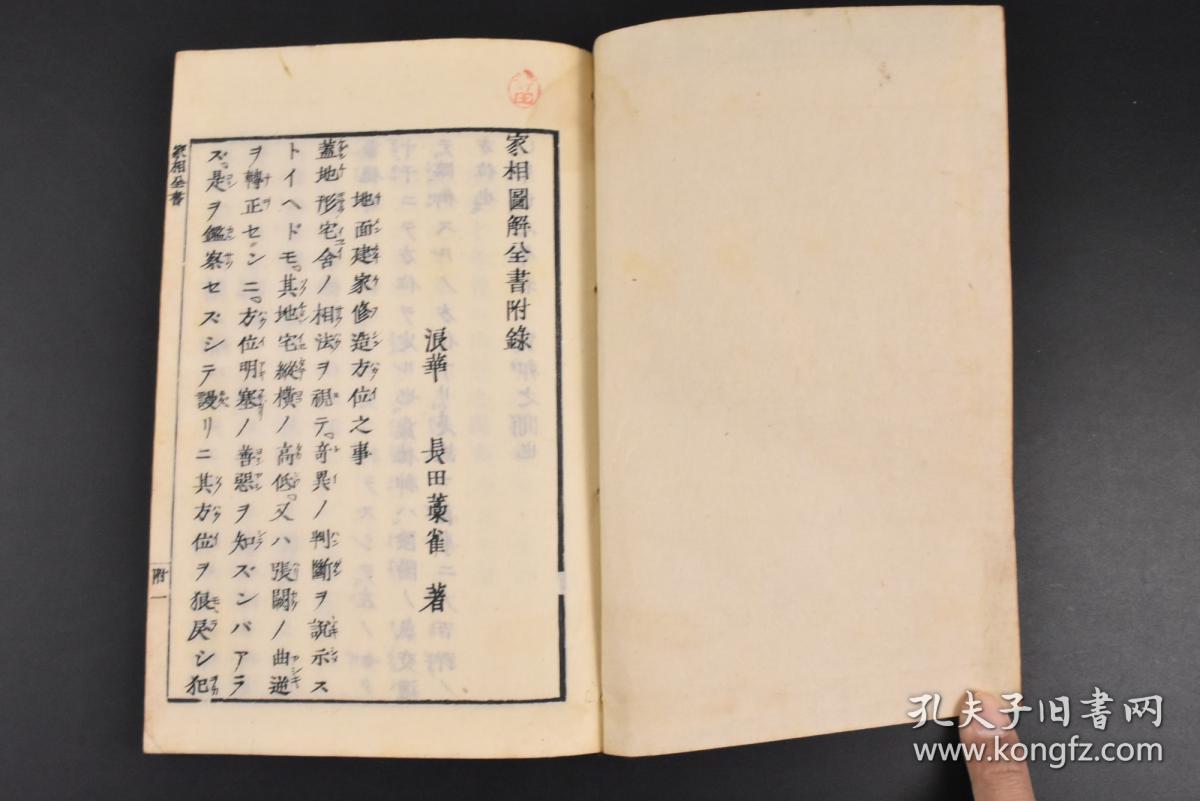 家相圖解全書附錄
浪華 長田藁雀 著
地面建家修造方位之事
蓋地形宅舍ノ相法ヲ視テ。奇異ノ判斷ヲ説示ス
トイヘドモ。其地宅縱横ノ高低。又ハ張闕ノ曲逆
ヲ轉正センニ。方位明塞ノ善惡ヲ知ズンバアラ
ズ。是ヲ鑑察セズシテ謾リニ其方位ヲ狠戻シ犯
家相全書
附一
孔夫子旧书网
www.kongfz.com